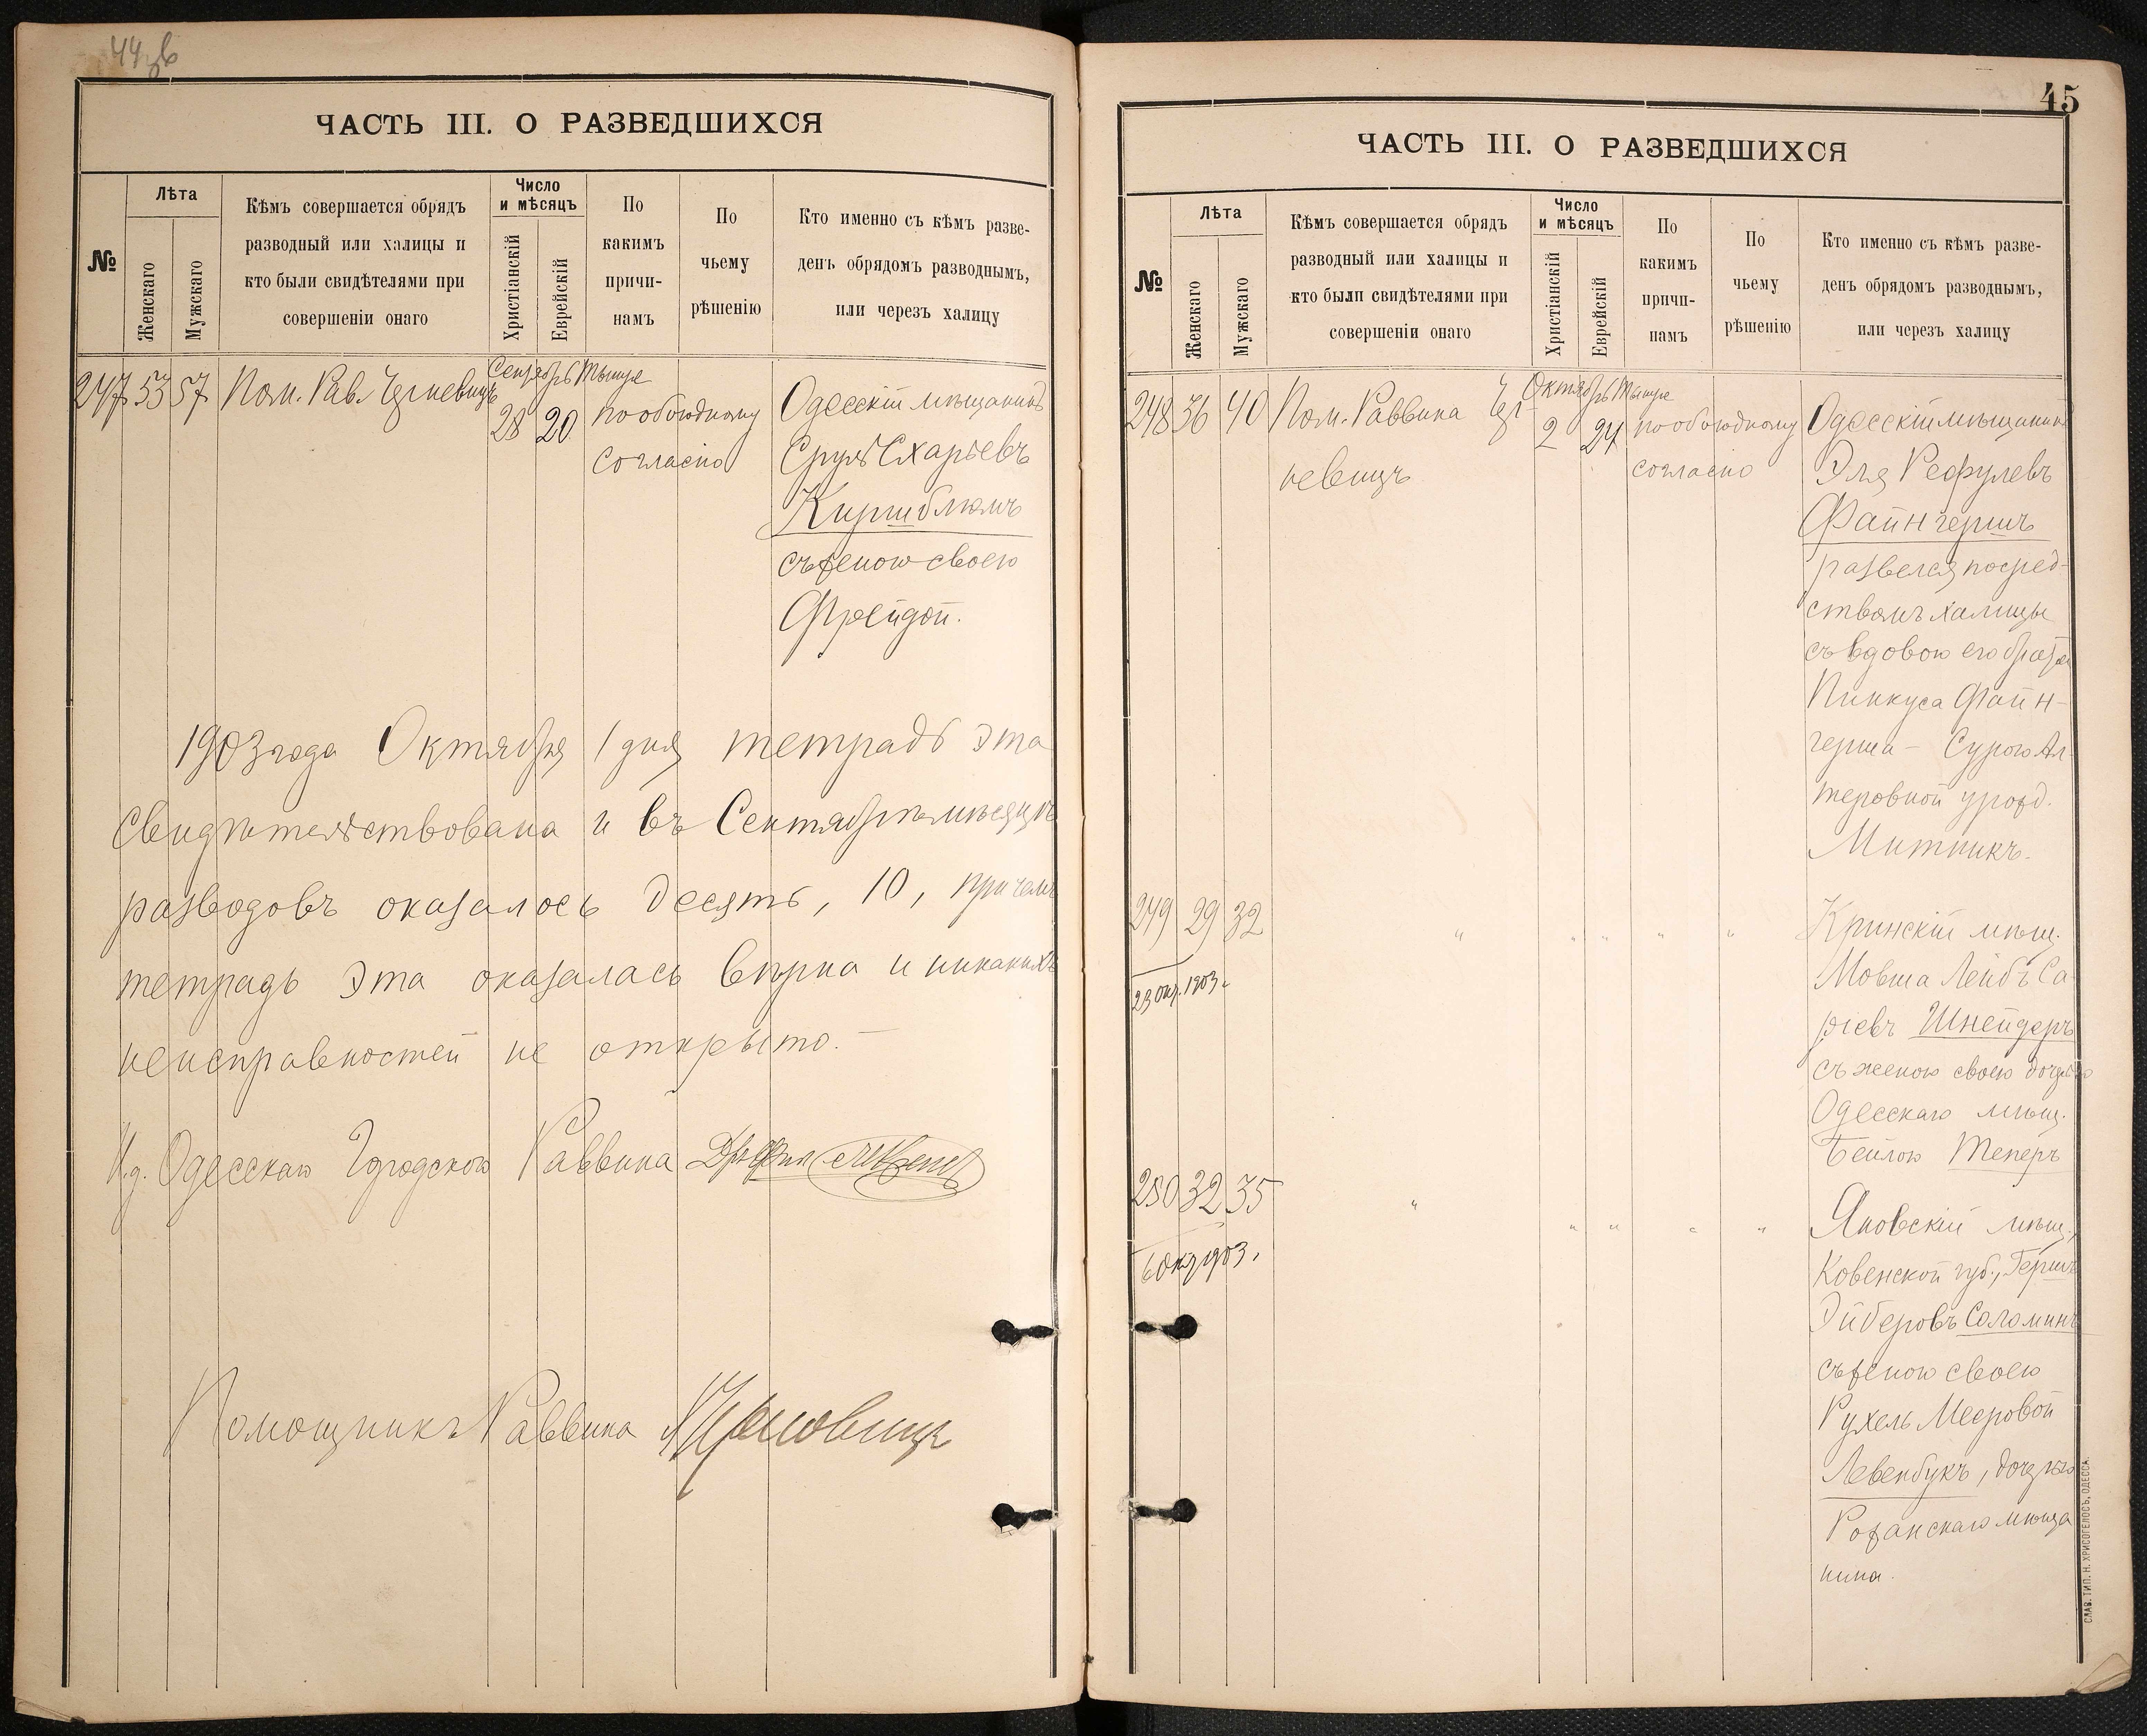 44 об
ЧАСТЬ III. О РАЗВЕДШИХСЯ
№
Лѣта
Женскаго
Мужскаго
Кѣмъ совершается обрядъ
разводный или халицы и
кто были свидѣтелями при
совершеніи онаго
Число
и мѣсяцъ
Христіанскій
Еврейскій
По
какимъ
причи-
намъ
По
чьему
рѣшенію
Кто именно съ кѣмъ разве-
денъ обрядомъ разводнымъ,
или черезъ халицу
247 53 57 Пом. Рав. Черневицъ
Сентябрь Тышре
28 20
по обоюдному
согласію
Одесскій мѣщанинъ
Сруль Схарьевъ
Киршблюмъ
съ женою своею
Фрейдой.
1903 года Октября 1 дня тетрадь эта
свидѣтельствована и въ Сентябрѣ мѣсяцѣ
разводовъ оказалось десять, 10, причемъ
тетрадь эта оказалась вѣрна и никакихъ
неисправностей не открыто.
И.д. Одесскаго Городского Раввина
Помощникъ Раввина
45
ЧАСТЬ III. О РАЗВЕДШИХСЯ
№
Лѣта
Женскаго
Мужскаго
Кѣмъ совершается обрядъ
разводный или халицы и
кто были свидѣтелями при
совершеніи онаго
Число
и мѣсяцъ
Христіанскій
Еврейскій
По
какимъ
причи-
намъ
По
чьему
рѣшенію
Кто именно съ кѣмъ разве-
денъ обрядомъ разводнымъ,
или черезъ халицу
248 36 40 Пом. Раввина Чер-
невицъ
Октябрь Тышре
2 24
по обоюдному
согласію
Одесскій мѣщанинъ
Эля Рефулевъ
Файнгершъ
развелся посред-
ствомъ халицы
съ вдовою его брата
Пинкуса Файн-
герша - Сурою Ал-
теровной урожд.
Митникъ.
249 29 32 " " " " "
23 окт. 1903.
Кринскій мѣщ.
Мовша Лейбъ Са-
ріевъ Шнейдеръ
съ женою своею дочерью
Одесскаго мѣщ.
Бейлою Теперъ
250 32 35 " " " " "
6 окт 1903.
Яновскій мѣщ.,
Ковенской губ., Гершъ
Эйберовъ Соломинъ
съ женою своею
Рухель Мееровой
Левенбукъ, дочерью
Рожанскаго мѣща
нина.
СЛАВ. ТИП. Н. ХРИСОГЕЛОСЪ, ОДЕССА.